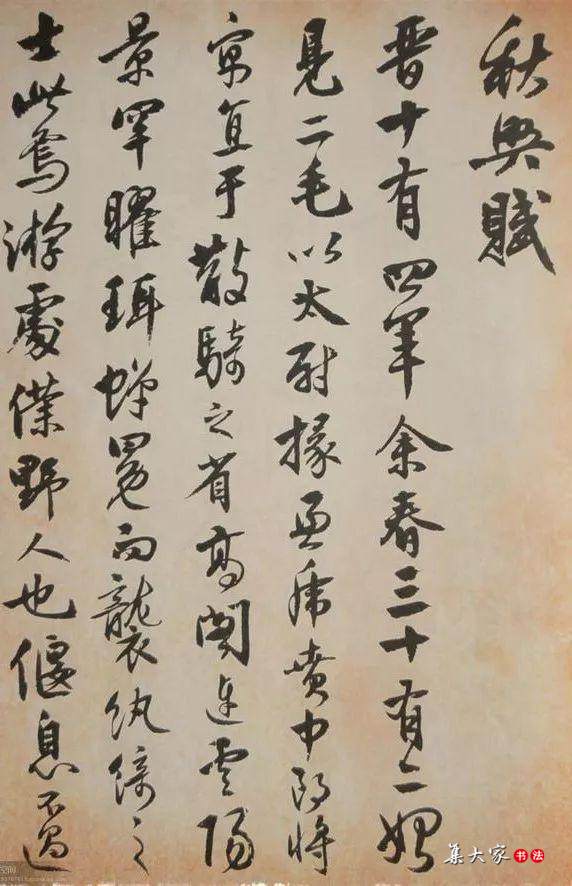 秋興賦
晉十有四年余春三十有二始
見二毛以太尉掾兼虎賁中郎將
寓直于散騎之省高閣連雲陽
景罕曜珥蟬冕而襲紈綺之
士此焉游處僕野人也偃息不過
集大家 书法